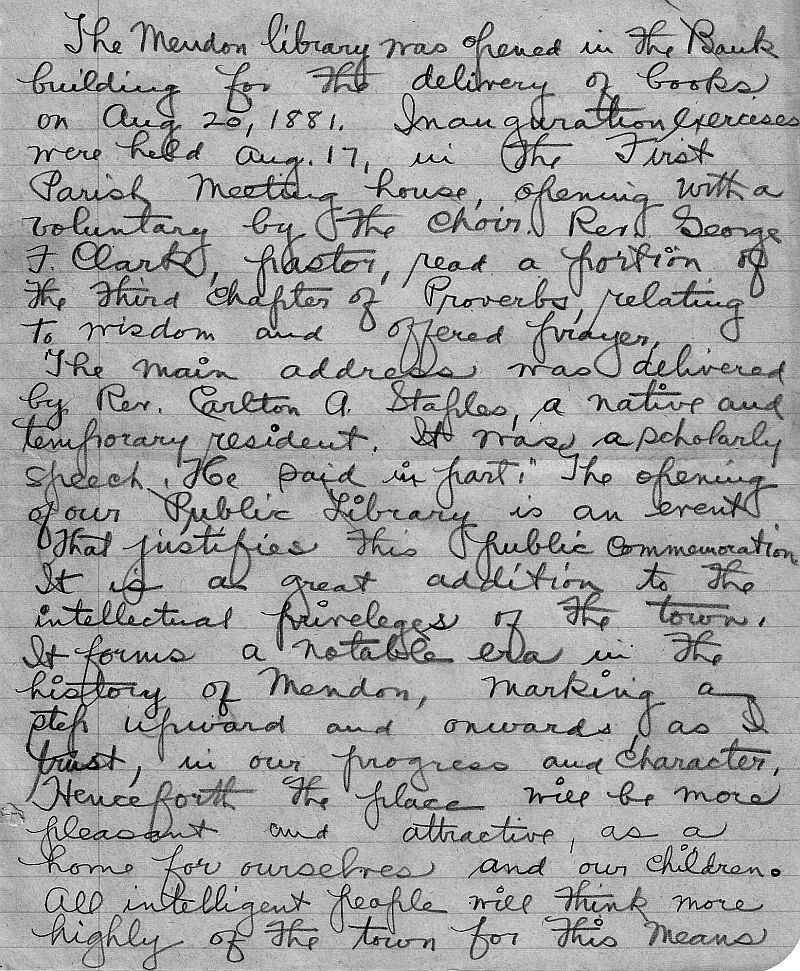 The Mendon library was opened in the Bank
building for the delivery of books
on Aug 20, 1881. Inauguration exercises
were held Aug. 17, in the First
Parish Meeting house, opening with a
voluntary by the choir. Rev. George
F. Clark, pastor, read a portion of
the third chapter of Proverbs, relating
to wisdom and offered prayer.
The main address was delivered
by Rev. Carlton A. Staples, a native and
temporary resident. It was a scholarly
speech. He said in part: "The opening
of our Public Library is an event
that justifies this public commemoration.
It is a great addition to the
intellectual priveleges of the town.
It forms a notable era in the
history of Mendon, marking a
step upward and onward, as I
trust, in our progress and character.
Henceforth the place will be more
pleasant and attractive, as a
home for ourselves and our children.
All intelligent people will think more
highly of the town for this means